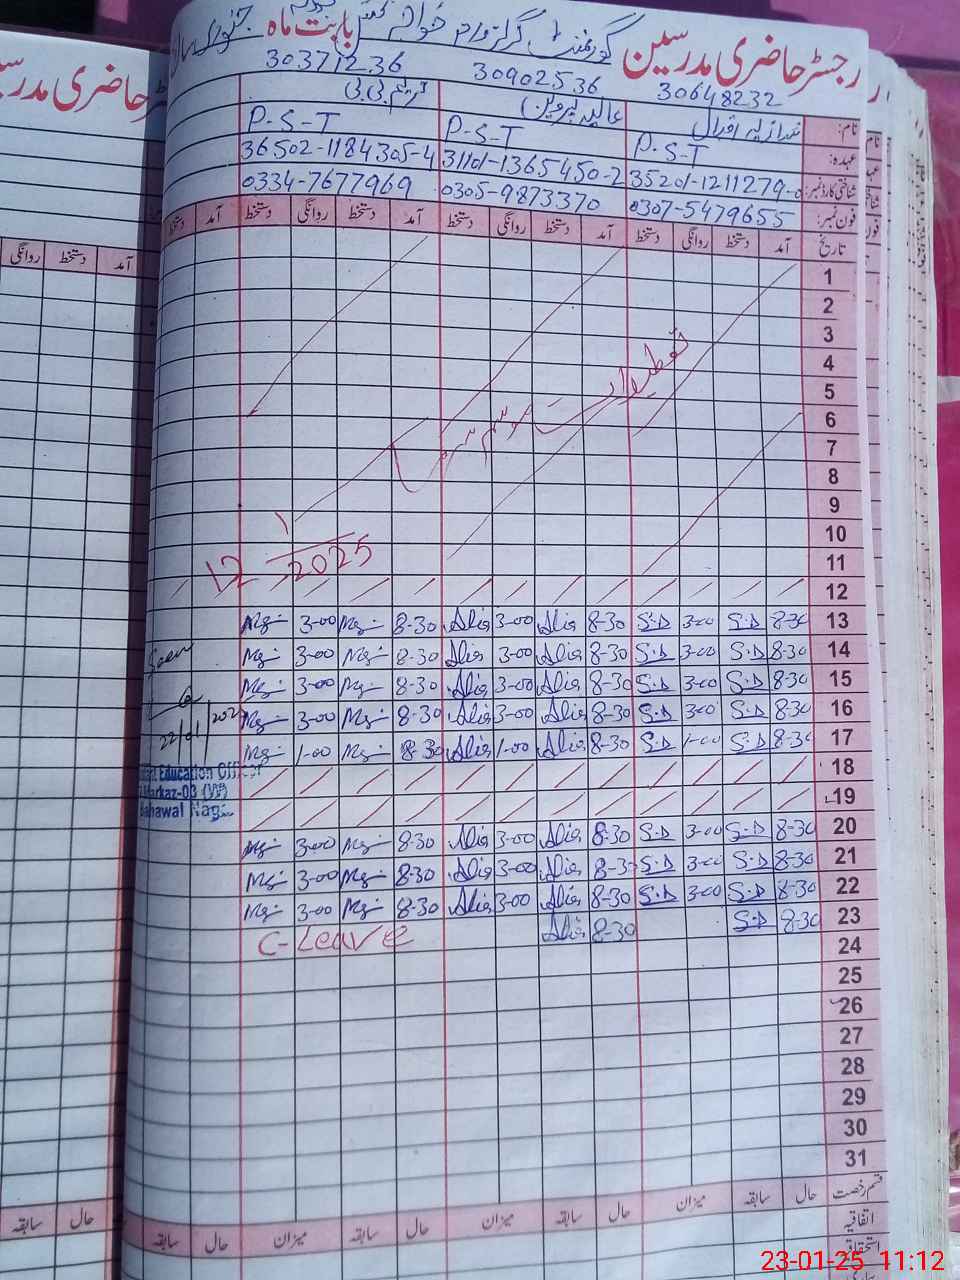 رجسٹر حاضری مدرسین گورنمنٹ گرلز بابت ماہ جنوری
30648232 30902536 30371236
نام: شازیہ اقبال عالیہ پروین بی بی
عہدہ: P-S-T P-S-T P-S-T
شناختی کارڈ نمبر: 35201-1211279-0 31101-1365450-2 36502-1184305-4
فون نمبر: 0307-5479655 0305-9873370 0334-7677969
تاریخ آمد دستخط روانگی دستخط آمد دستخط روانگی دستخط آمد دستخط روانگی دستخط آمد دستخط
1
2
3
4
5
6
7
8
9
10
11
تعطیلات موسم سرما
12 1 2025
12
13 8-30 S.D 3-00 S.D 8-30 Alia 3-00 Alia 8-30 3-00
14 8-30 S.D 3-00 S.D 8-30 Alia 3-00 Alia 8-30 3-00
15 8-30 S.D 3-00 S.D 8-30 Alia 3-00 Alia 8-30 3-00
16 8-30 S.D 3-00 S.D 8-30 Alia 3-00 Alia 8-30 3-00
17 8-30 S.D 1-00 S.D 8-30 Alia 1-00 Alia 8-30 1-00
Seen
22/01/202
Education Officer
Markaz-03 (W)
Bahawal Nagar
18
19
20 8-30 S.D 3-00 S.D 8-30 Alia 3-00 Alia 8-30 3-00
21 8-30 S.D 3-00 S.D 8-3 Alia 3-00 Alia 8-30 3-00
22 8-30 S.D 3-00 S.D 8-30 Alia 3-00 Alia 8-30 3-00
23 8-30 S.D 8-30 Alia C-Leave
24
25
26
27
28
29
30
31
قسم رخصت حال سابقہ میزان حال سابقہ میزان حال سابقہ میزان حال سابقہ
اتفاقیہ
استحقاقی
حاضری مدرسین
آمد دستخط روانگی
حال سابقہ
23-01-25 11:12